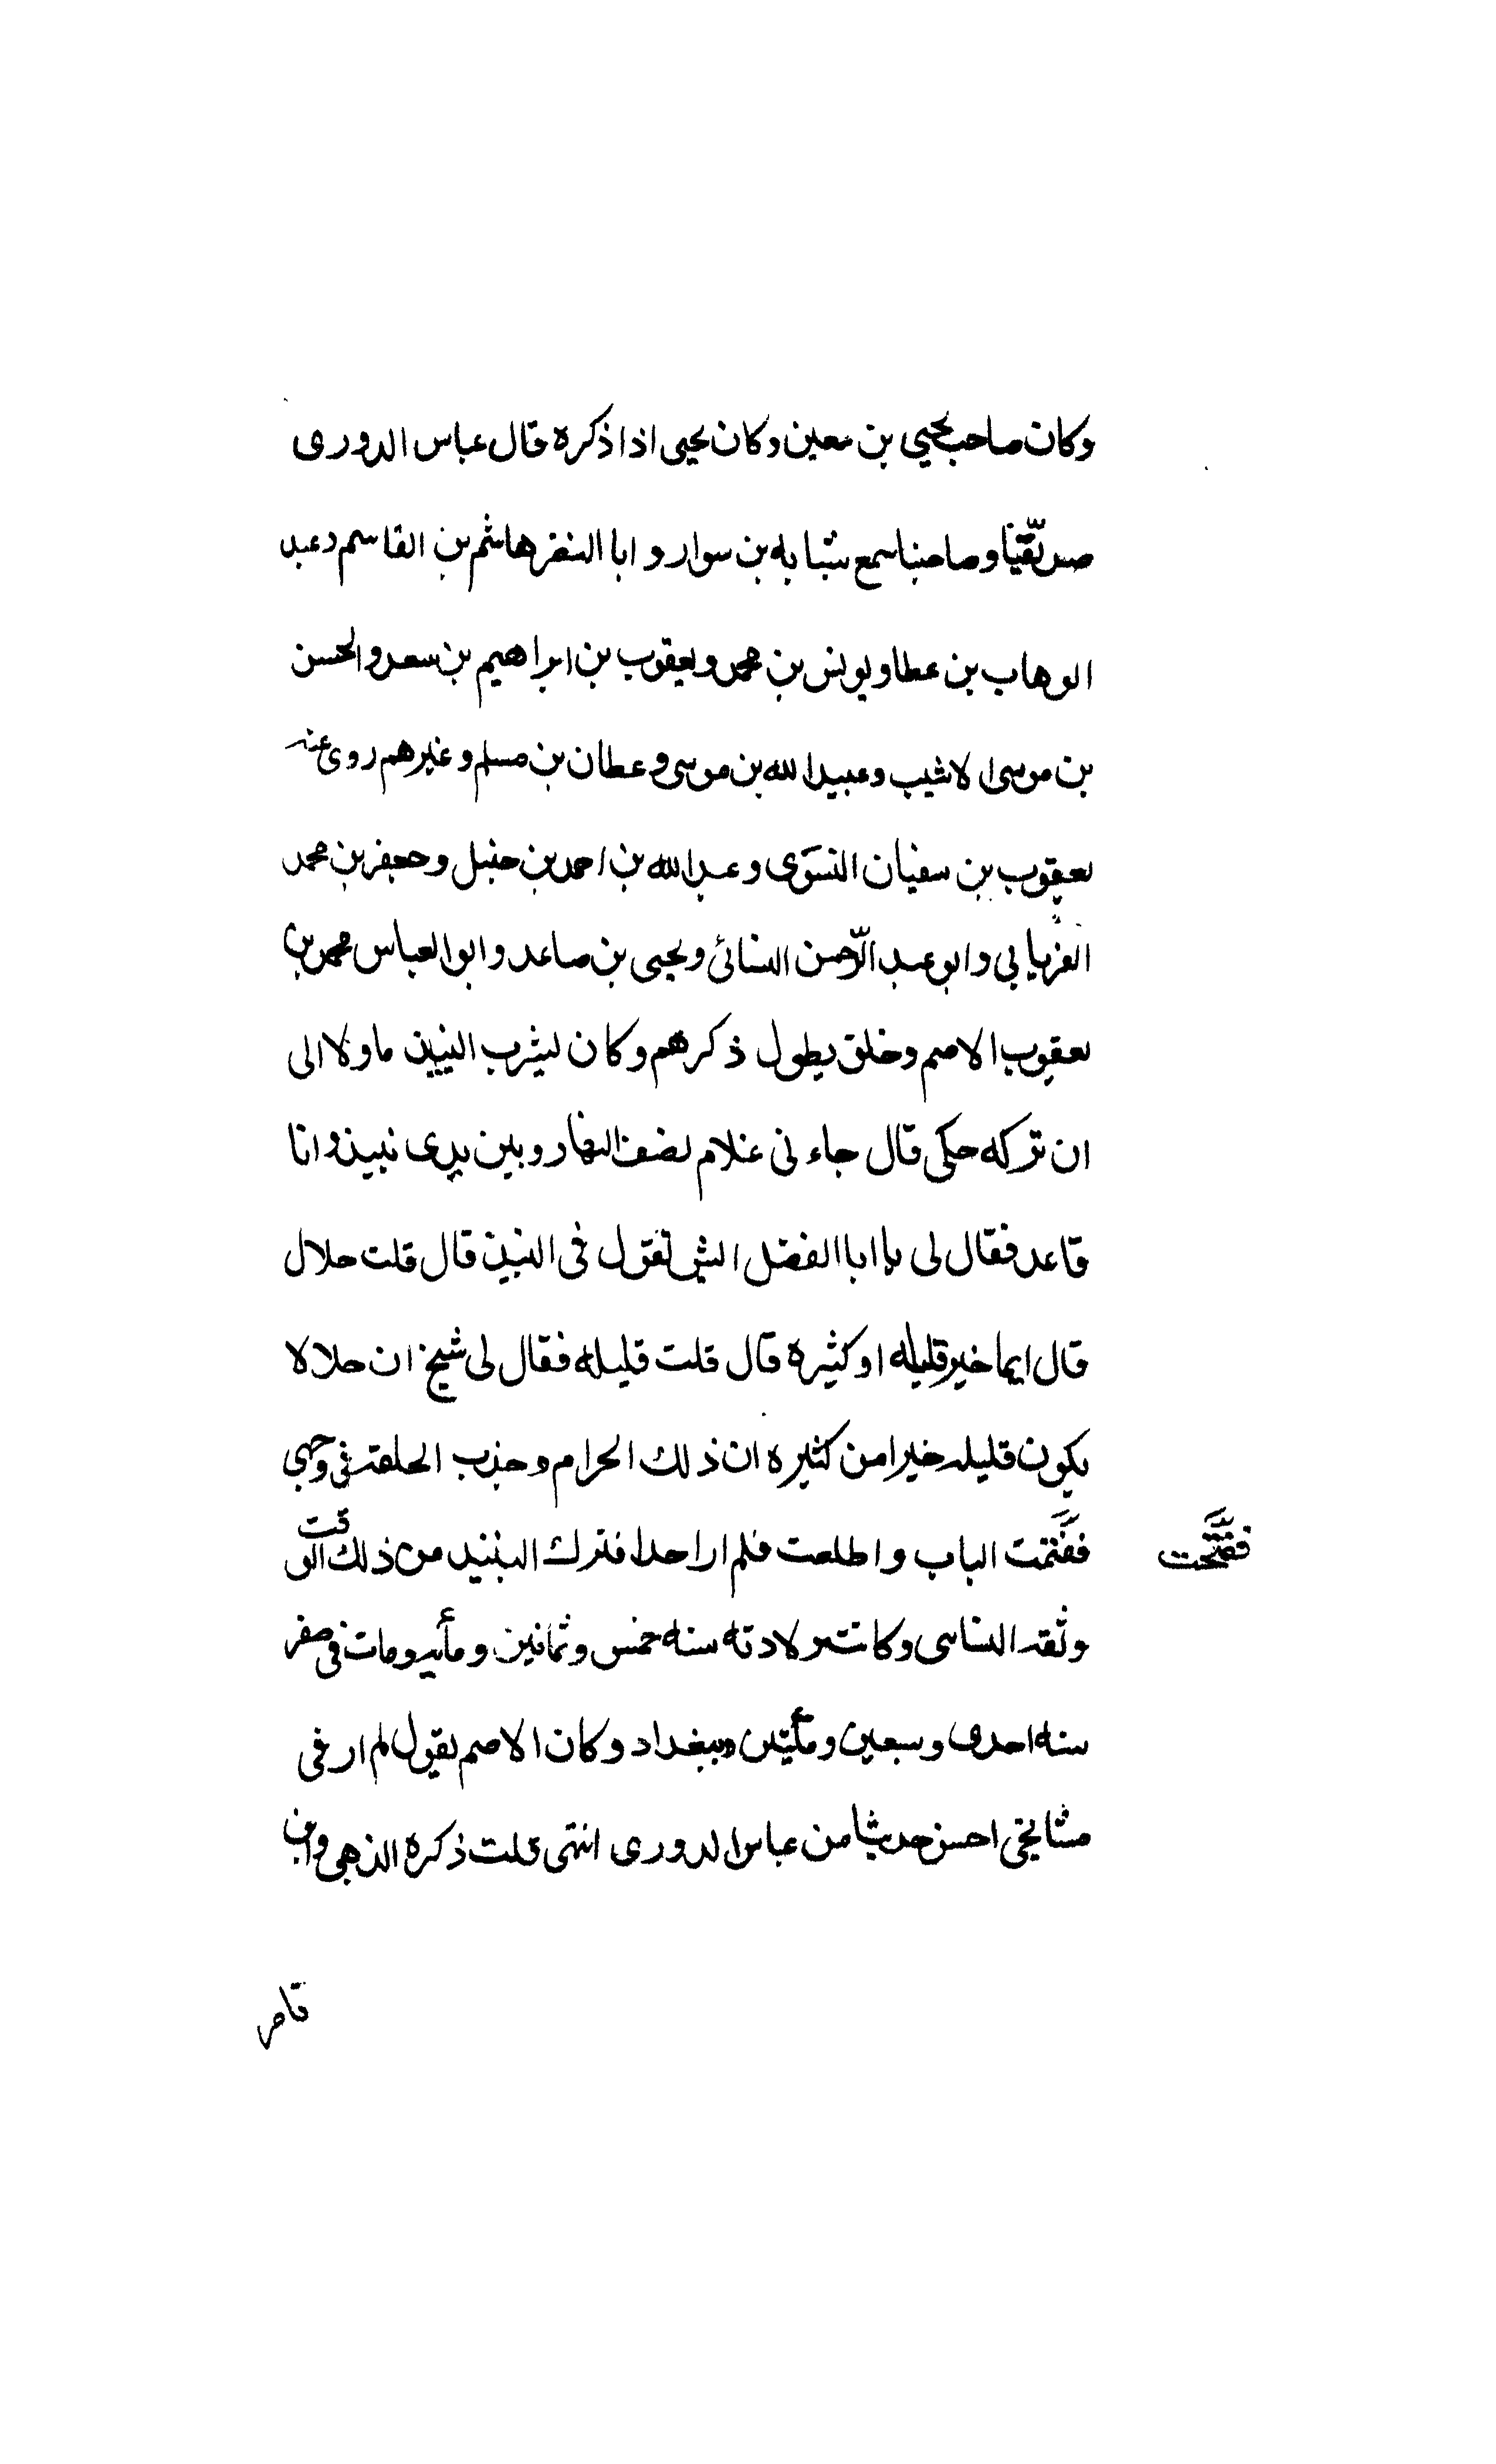 وكان صاحب يحيي بن معين وكان يحيى اذا ذكره قال عباس الدورى
صديقنا وصاحبنا سمع شبابه بن سوار و ابا النضر هاشم بن القاسم وعبد
الوهاب بن عطا ويونس بن محمد ويعقوب بن ابراهيم بن سعد والحسن
بن موسى الاشيب وعبيد الله بن موسى وعطان بن مسلم وغيرهم روى عنه
يعقوب بن سفيان النسوى وعبد الله بن احمد بن حنبل وجعفر بن محمد
الفريابي وابو عبد الرّحمن النسائي ويحيى بن صاعد وابو العباس محمد بن
يعقوب الاصم وخلق يطول ذكرهم وكان يشرب النبيذ ماولا الى
ان تركه حكى قال جاء نى غلام نصف النهار وبين يدى نبيذ وانا
قاعد فقال لى يا ابا الفضل ايش تقول فى النبيذ قال قلت حلال
قال ايما خير قليله او كثيره قال قلت قليله فقال لى شيخ ان حلالا
يكون قليله خيرا من كثيره ان ذلك الحرام وجذب الحلقة فى وجهى
ففتحت الباب واطلعت فلم ار احدا فترك النبيذ من ذلك الوقت
ففتحت
وثقه النساى وكانت ولادته سنه خمس وثمانين ومأيه ومات فى صفر
سنه احدى وسبعين ومأيتين ببغداد وكان الاصم يقول لم ار فى
مشايخى احسن حديثا من عباس الدورى انتهى قلت ذكره الذهبى وابن